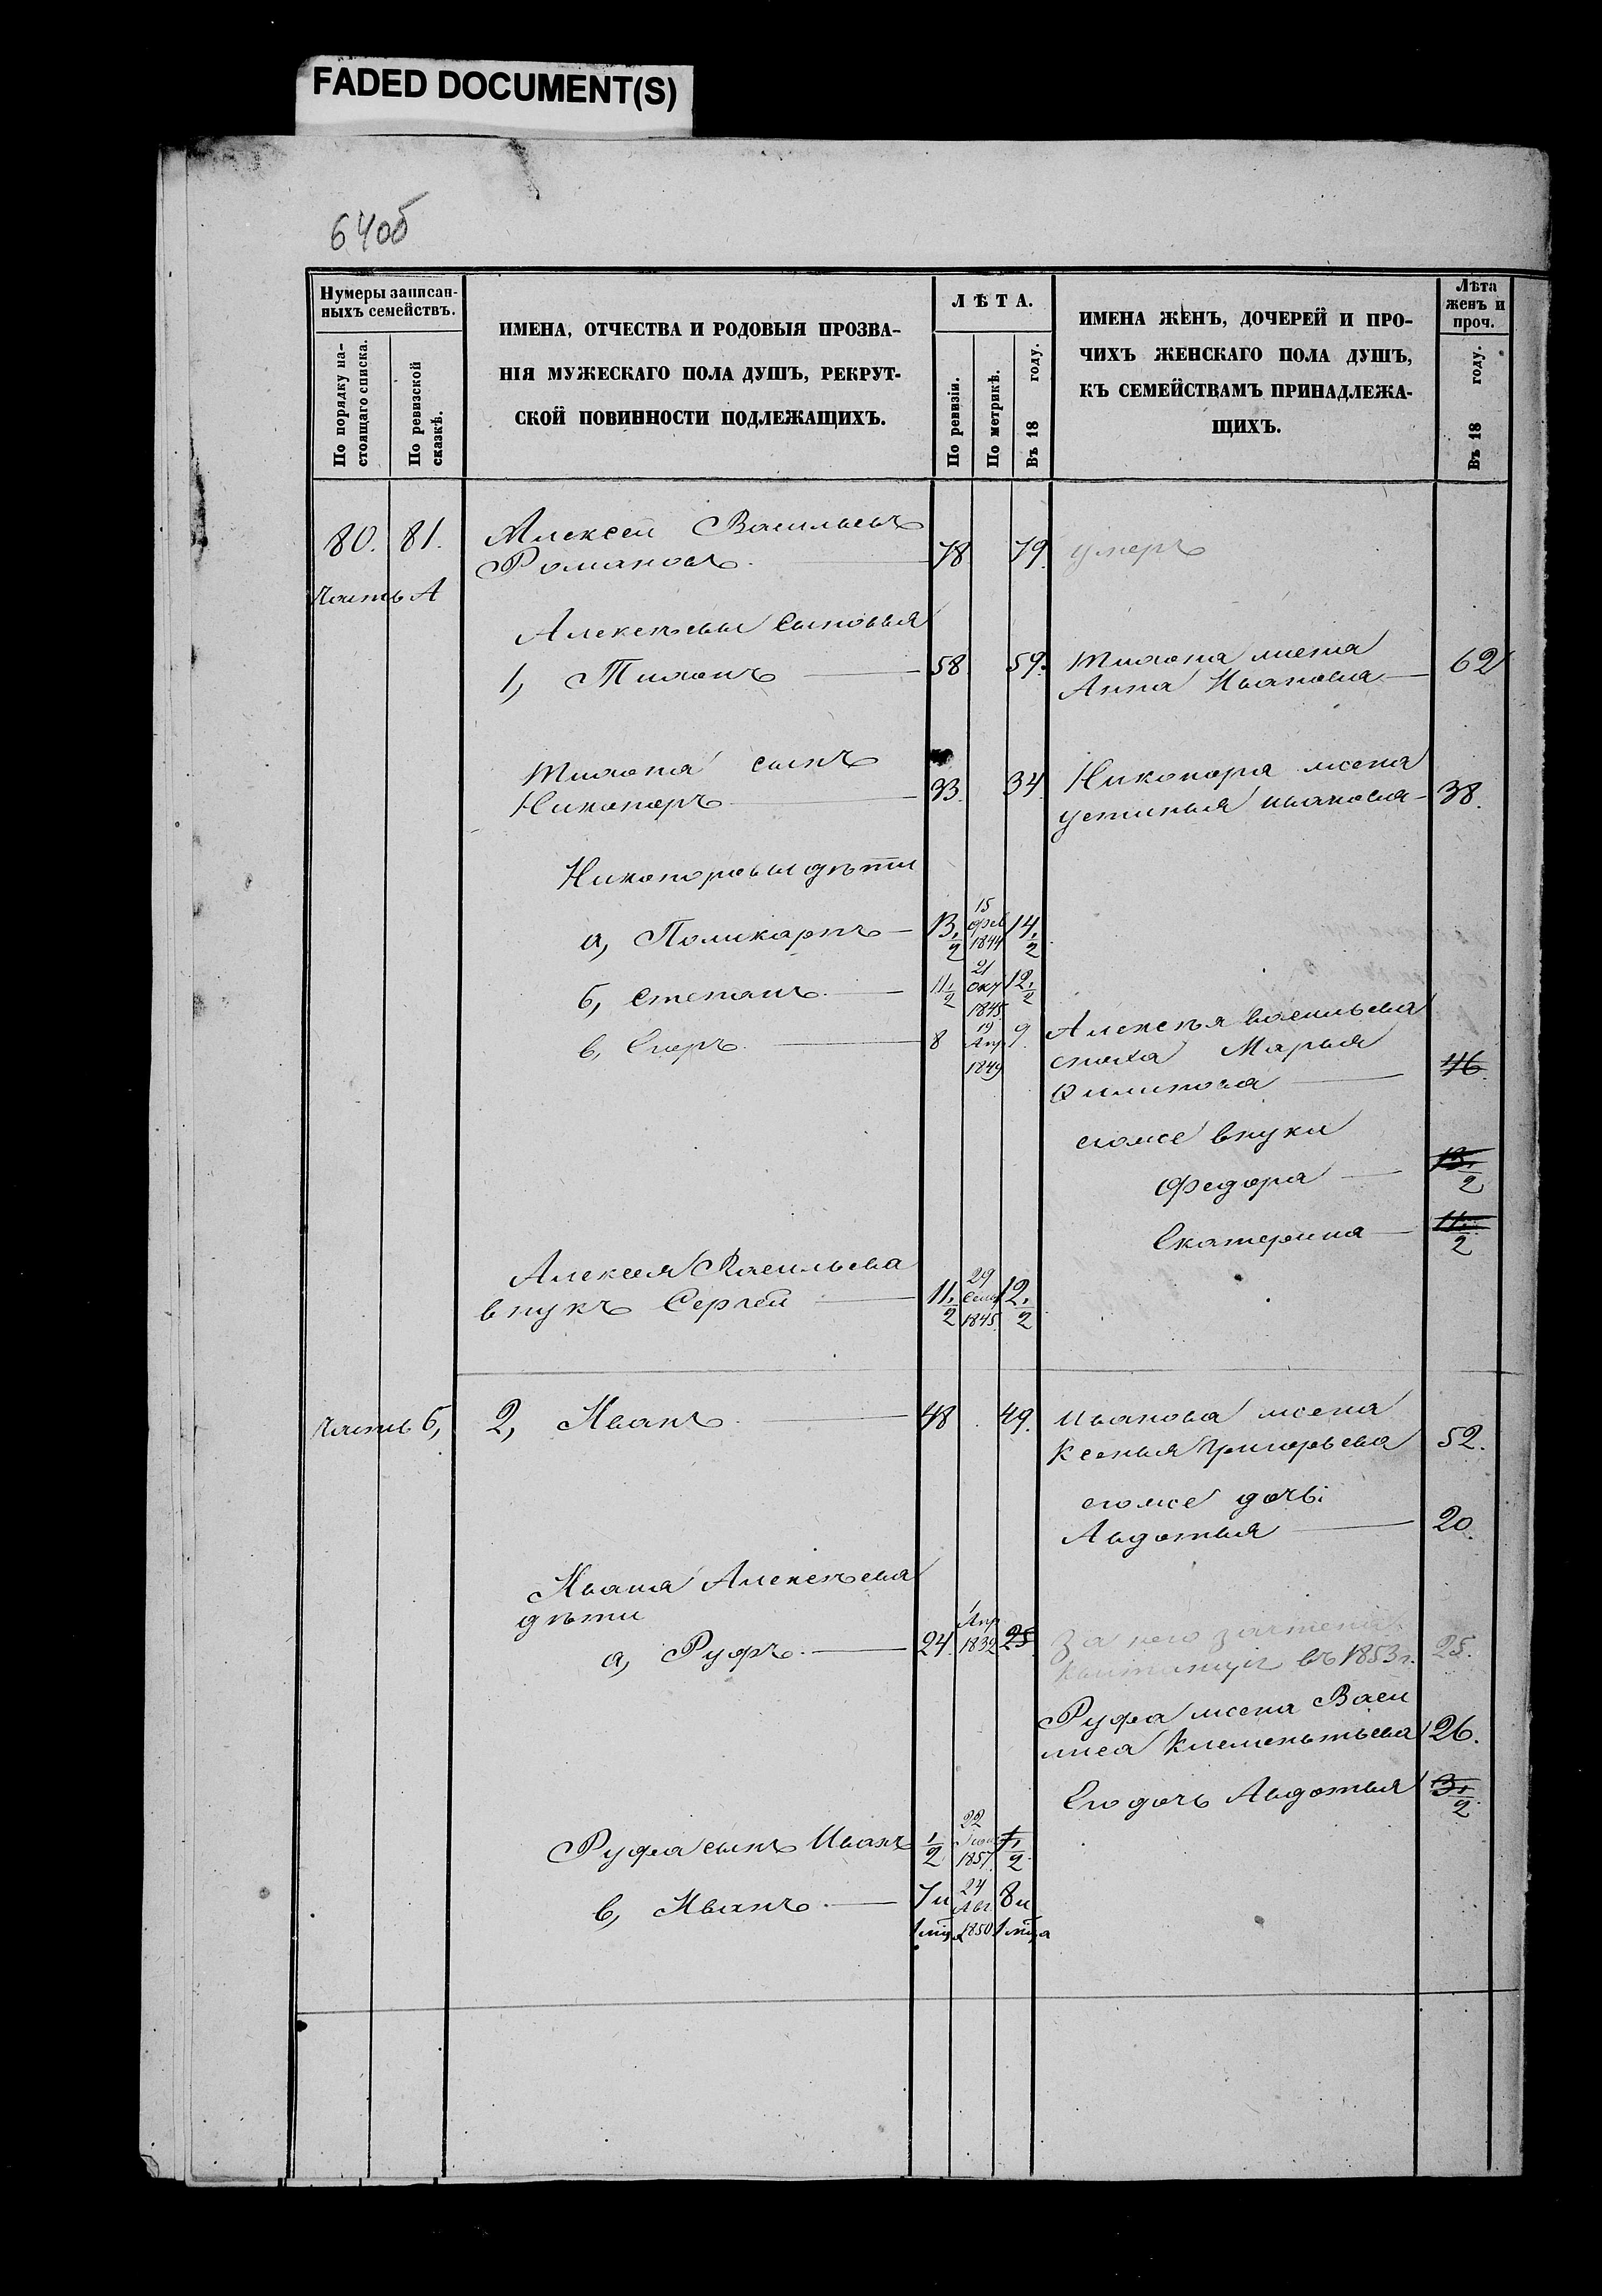 FADED DOCUMENT(S)
64об
Нумеры записан-
ныхъ семействъ.
По порядку на-
стоящаго списка.
По ревизской
сказкѣ.
ИМЕНА, ОТЧЕСТВА И РОДОВЫЯ ПРОЗВА-
НІЯ МУЖЕСКАГО ПОЛА ДУШЪ, РЕКРУТ-
СКОЙ ПОВИННОСТИ ПОДЛЕЖАЩИХЪ.
ЛѢТА.
По ревизіи.
По метрикѣ.
Въ 18 году.
ИМЕНА ЖЕНЪ, ДОЧЕРЕЙ И ПРО-
ЧИХЪ ЖЕНСКАГО ПОЛА ДУШЪ,
КЪ СЕМЕЙСТВАМЪ ПРИНАДЛЕЖА-
ЩИХЪ.
Лѣта
женъ и
проч.
Въ 18 году.
80. 81. Алексей Васильевъ
Романовъ. 78 79. умеръ
Часть А
Алексѣевы Сыновья
1, Тихонъ 58 59. Тихона жена
Анна Иванова 62
Тихона сынъ
Никоноръ 33. 34. Никонора жена
устинья иванова 38.
Никоноровы дѣти
а, Поликарпъ 13 1/2 15 фев 1844 14 1/2
б, Степанъ 11 1/2 21 окт 1845 12 1/2
в, Егоръ 8 19 Апр 1849 9.
Алексѣя васильева
сноха Марья
Филипова 46.
егоже внуки
Федора 13 1/2
Екатерина 11 1/2
Алексея Васильева
внукъ Сергей 11 1/2 29 Сент 1845. 12 1/2
Часть б, 2, Иванъ 48 49. Иванова жена
Ксенья Григорьева 52.
егоже дочь
Авдотья 20.
Ивана Алексѣева
дѣти
а, Руфъ 24. 1 Апр 1832 25 За него зачтена
квитанція въ 1853 г. 25.
Руфа жена Васи
лиса Клементьева 26.
Его дочь Авдотья 3 1/2
Руфа сынъ Иванъ 1/2 22 1857 1 1/2
в, Иванъ 7 и 1 мца 24 Авг 1850 8 и 1 мца